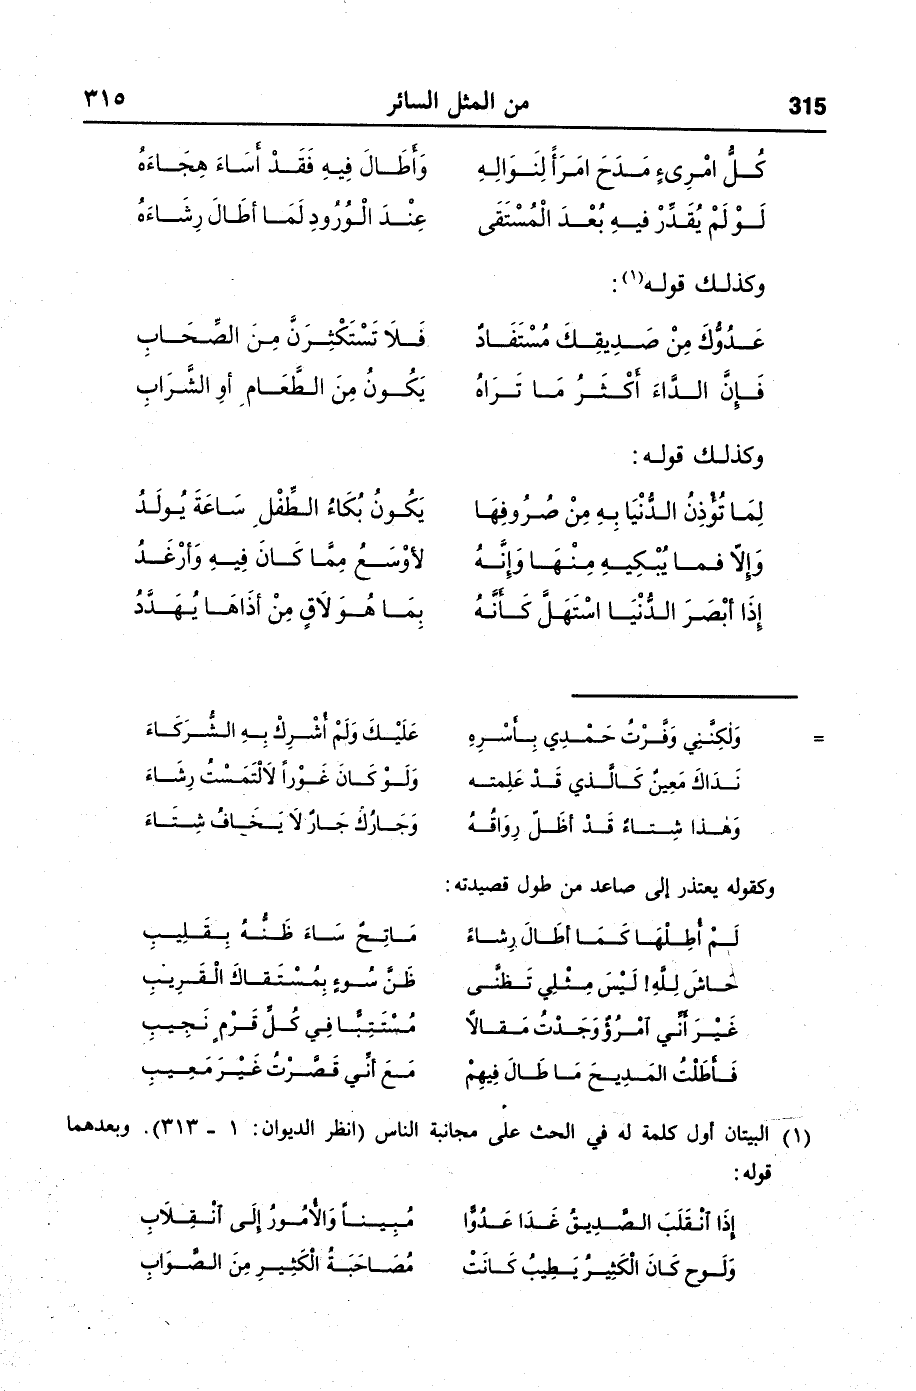 315 من المثل السائر ٣١٥
كُلُّ امْرِىءٍ مَدَحَ امْرَأً لِنَوَالِهِ وَأَطَالَ فِيهِ فَقَدْ أَسَاءَ هِجَاءَهُ
لَوْ لَمْ يُقَدِّرْ فيهِ بُعْدَ الْمُسْتَقَى عِنْدَ الْوُرُودِ لَمَا أطَالَ رِشَاءَهُ
وكذلك قوله(١):
عَدُوُّكَ مِنْ صَدِيقِكَ مُسْتَفَادٌ فَلَا تَسْتَكْثِرَنَّ مِنَ الصِّحَابِ
فَإِنَّ الدَّاءَ أَكْثَرُ مَا تَرَاهُ يَكُونُ مِنَ الطَّعَامِ أوِ الشَّرَابِ
وكذلك قوله:
لِمَا تُؤْذِنُ الدُّنْيَا بِهِ مِنْ صُرُوفِهَا يَكُونُ بُكَاءُ الطِّفْلِ سَاعَةَ يُولَدُ
وَإلّا فما يُبْكِيهِ مِنْهَا وَإِنَّهُ لأوْسَعُ مِمَّا كَانَ فِيهِ وَأرْغَدُ
إذَا أبْصَرَ الدُّنْيَا اسْتَهَلَّ كَأَنَّهُ بِمَا هُوَ لَاقٍ مِنْ أذَاهَا يُهَدَّدُ
= وَلٰكِنَّنِي وَفَّرْتُ حَمْدِي بِأَسْرِهِ عَلَيْكَ وَلَمْ أُشْرِكْ بِهِ الشُّرَكَاءَ
نَدَاكَ مَعِينٌ كَالَّذي قَدْ عَلِمته وَلَوْ كَانَ غَوْراً لَالْتَمَسْتُ رِشَاءَ
وَهٰذا شِتاءٌ قَدْ أظَلّ رِوَاقُهُ وَجَارُكَ جَارٌ لَا يَخَافُ شِتَاءَ
وكقوله يعتذر إلى صاعد من طول قصيدته:
لَمْ أُطِلْهَا كَمَا أطَالَ رِشاءً مَاتِحٌ سَاءَ ظَنُّهُ بِقَلِيبِ
حَاشَ لِلّٰهِ! لَيْسَ مِثْلِي تَظَنَّى ظَنَّ سُوءٍ بِمُسْتَقاكَ الْقَرِيبِ
غَيْرَ أَنِّي آمْرُؤٌ وَجَدْتُ مَقالاً مُسْتَتِبًّا فِي كُلِّ قَرْمٍ نَجِيبِ
فَأَطَلْتُ المَدِيحَ مَا طَالَ فِيهِمْ مَعَ أنِّي قَصَّرْتُ غَيْرَ مَعِيبِ
(١) البيتان أول كلمة له في الحث على مجانبة الناس (انظر الديوان: ١ - ٣١٣). وبعدهما
قوله:
إذَا آنْقَلَبَ الصَّدِيقُ غَدَا عَدُوًّا مُبِيناً وَالأُمُورُ إلَى آنْقِلَابِ
وَلَوح كَانَ الْكَثِيرُ يَطِيبُ كَانَتْ مُصَاحَبَةُ الْكَثِيرِ مِنَ الصَّوَابِ